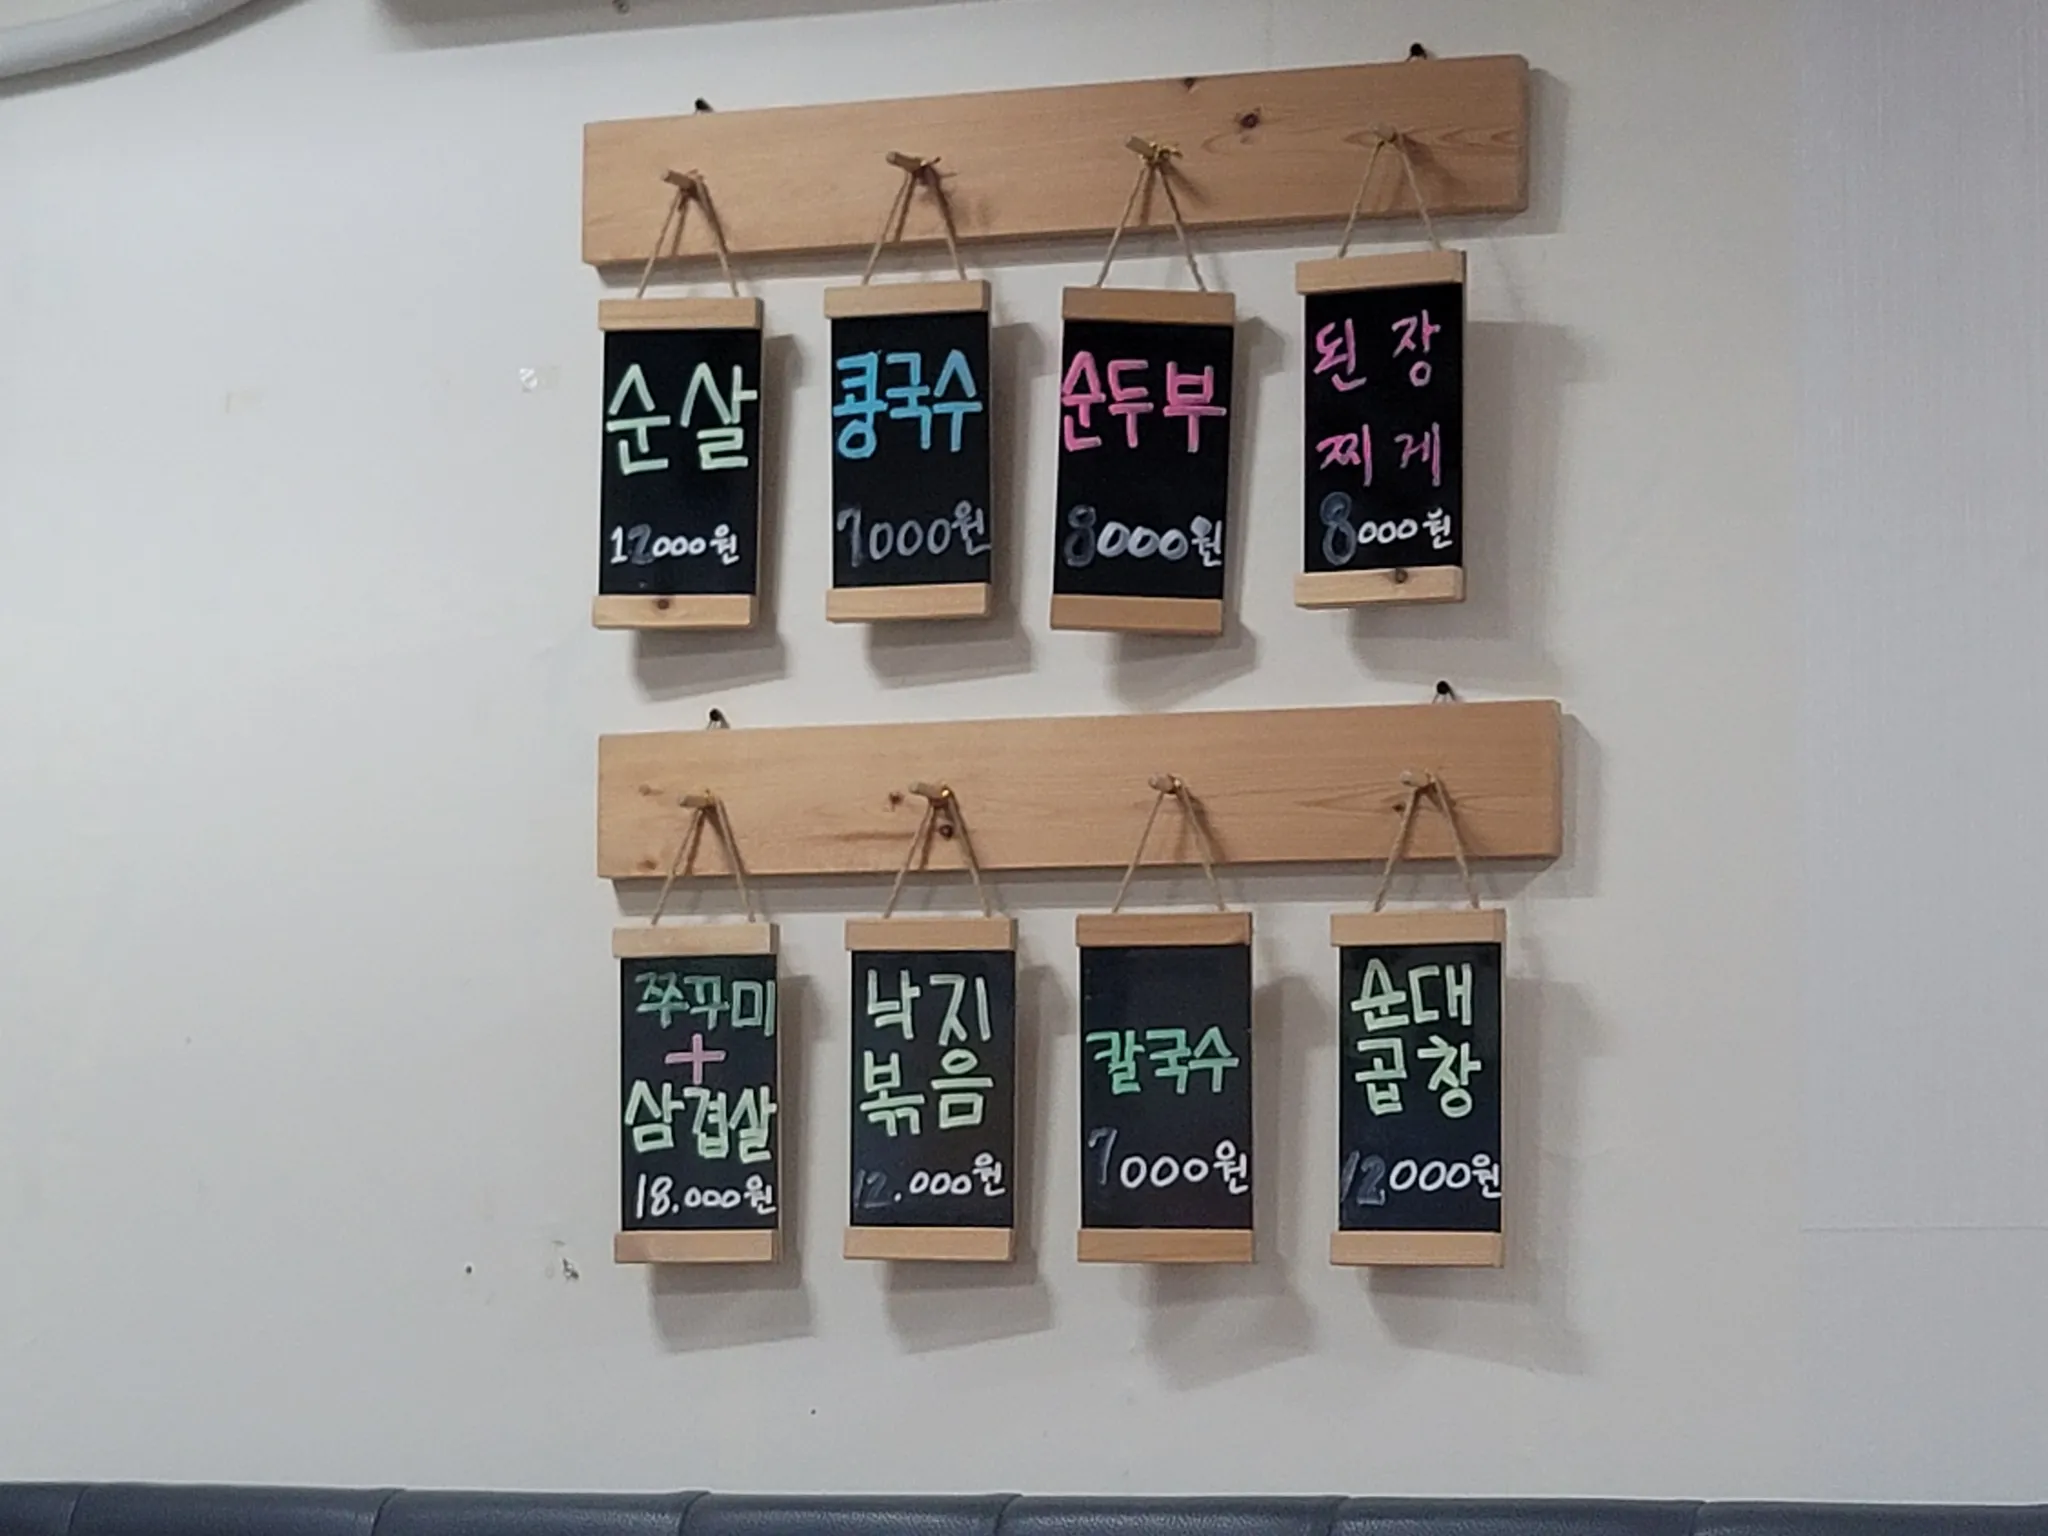 순살
12000원
콩국수
7000원
순두부
8000원
된장
찌게
8000원
쭈꾸미
+
삼겹살
18.000원
낙지
볶음
12.000원
칼국수
7000원
순대
곱창
12000원